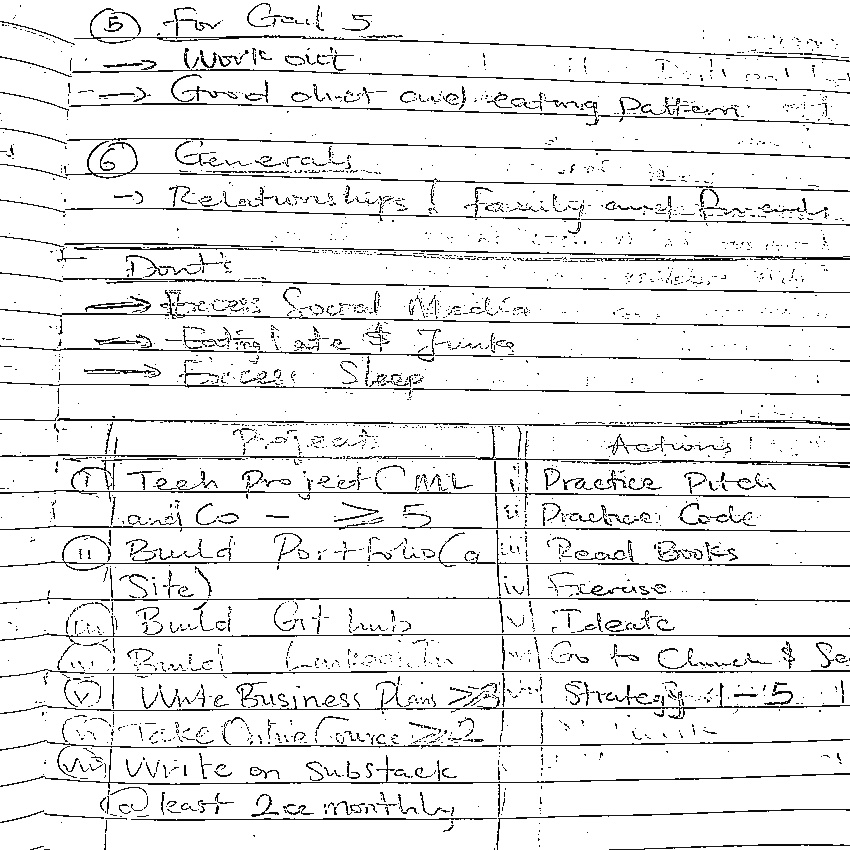 5 For Goal 5
→ Work out
→ Good diet and eating pattern
6 Generals
→ Relationships | family and friends
Dont's
⟹ Excess Social Media
⟹ Eating Late & Junks
⟹ Excess Sleep
Project Actions
i Tech Project (ML i Practice Pitch
and Co - ≥ 5 ii Practice Code
ii Build Portfolio (a iii Read Books
Site) iv Exercise
iii Build Git hub v Ideate
iv Build LinkedIn vi Go to Church & Se
v Write Business Plans ≥3 vii Strategy 1-5
vi Take Online Course ≥2
vii Write on Substack
@ least 2ce monthly